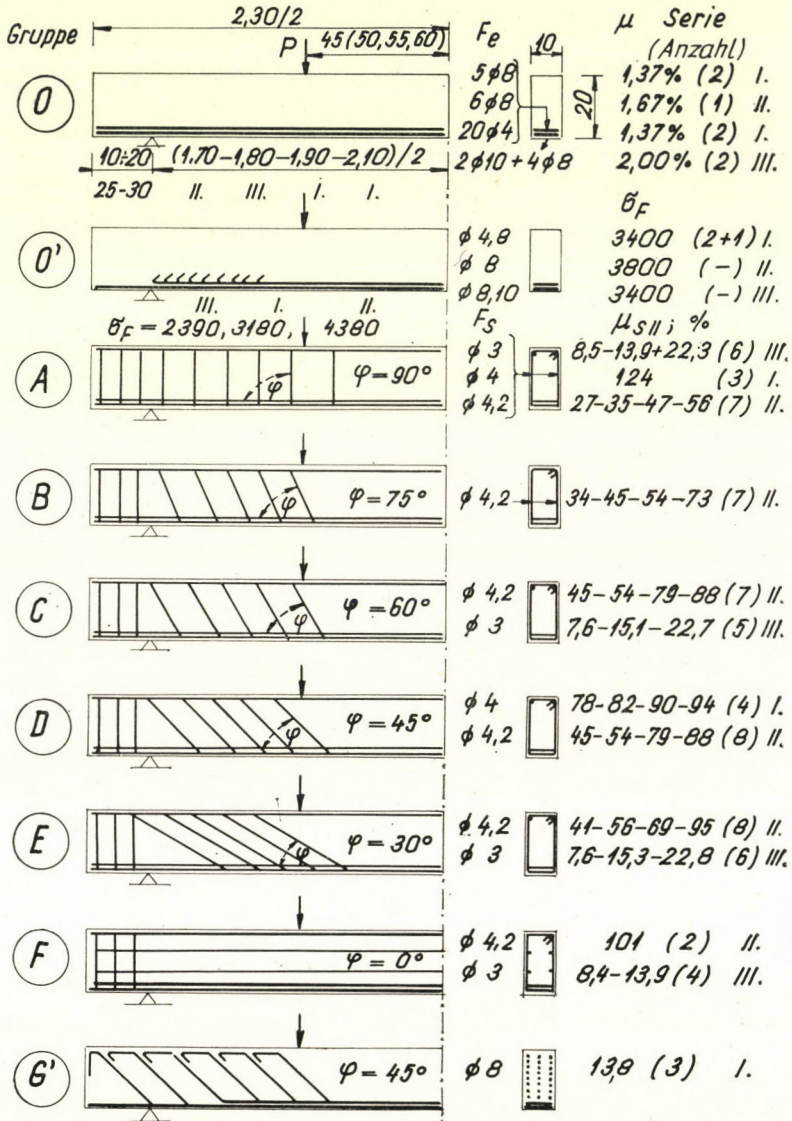 Gruppe 2,30/2 Fe 10 μ Serie
P 45(50,55,60) (Anzahl)
O 5ϕ8 20 1,37% (2) I.
6ϕ8 1,67% (1) II.
20ϕ4 1,37% (2) I.
10÷20 (1,70-1,80-1,90-2,10)/2 2ϕ10+4ϕ8 2,00% (2) III.
25-30 II. III. I. I.
σF
O' ϕ 4,8 3400 (2+1) I.
ϕ 8 3800 (-) II.
ϕ 8,10 3400 (-) III.
III. I. II.
σF = 2390, 3180, 4380 Fs μSII; %
A φ φ=90° ϕ 3 8,5-13,9+22,3 (6) III.
ϕ 4 124 (3) I.
ϕ 4,2 27-35-47-56 (7) II.
B φ φ=75° ϕ 4,2 34-45-54-73 (7) II.
C φ φ=60° ϕ 4,2 45-54-79-88 (7) II.
ϕ 3 7,6-15,1-22,7 (5) III.
D φ φ=45° ϕ 4 78-82-90-94 (4) I.
ϕ 4,2 45-54-79-88 (8) II.
E φ φ=30° ϕ 4,2 41-56-69-95 (8) II.
ϕ 3 7,6-15,3-22,8 (6) III.
F φ=0° ϕ 4,2 101 (2) II.
ϕ 3 8,4-13,9 (4) III.
G' φ=45° ϕ 8 13,8 (3) I.